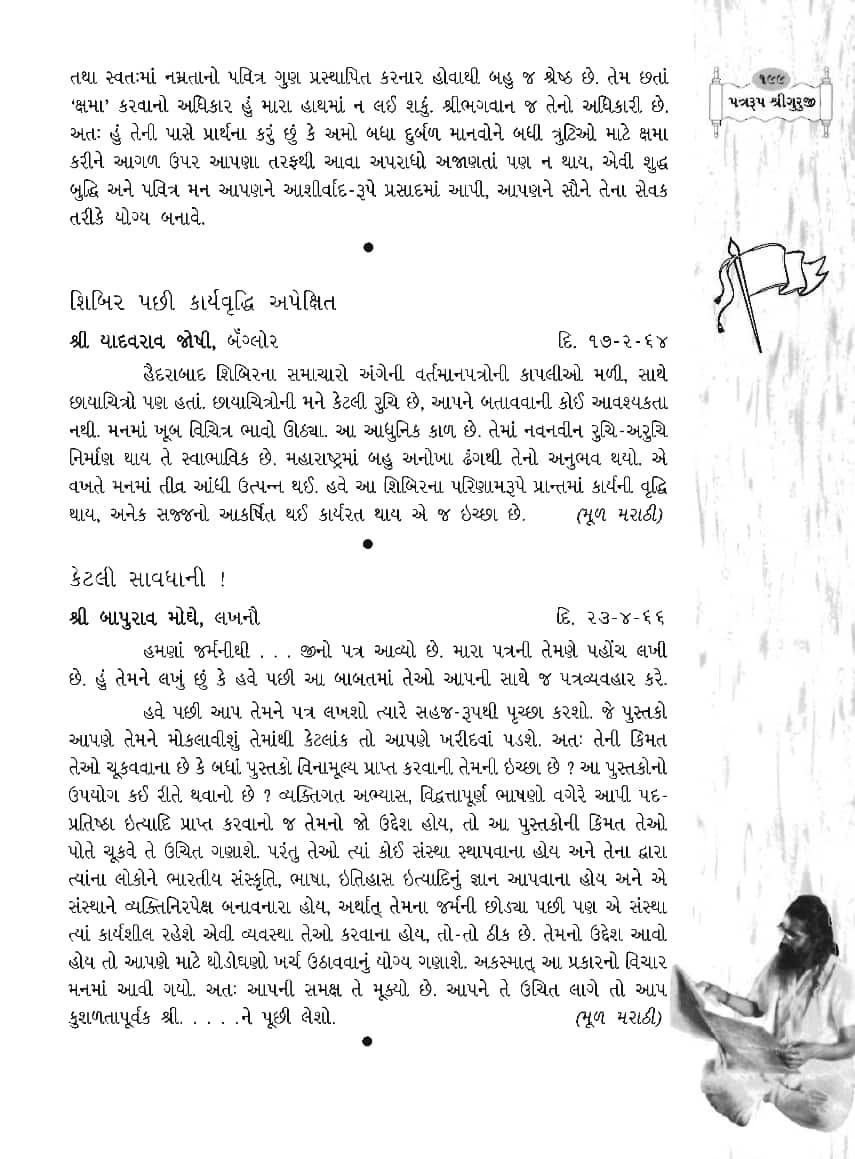 ૧૯૯
પત્રરૂપ શ્રીગુરુજી
તથા સ્વતઃમાં નમ્રતાનો પવિત્ર ગુણ પ્રસ્થાપિત કરનાર હોવાથી બહુ જ શ્રેષ્ઠ છે. તેમ છતાં
‘ક્ષમા’ કરવાનો અધિકાર હું મારા હાથમાં ન લઈ શકું. શ્રીભગવાન જ તેનો અધિકારી છે.
અતઃ હું તેની પાસે પ્રાર્થના કરું છું કે અમો બધા દુર્બળ માનવોને બધી ત્રુટિઓ માટે ક્ષમા
કરીને આગળ ઉપર આપણા તરફથી આવા અપરાધો અજાણતાં પણ ન થાય, એવી શુદ્ધ
બુદ્ધિ અને પવિત્ર મન આપણને આશીર્વાદ-રૂપે પ્રસાદમાં આપી, આપણને સૌને તેના સેવક
તરીકે યોગ્ય બનાવે.
●
શિબિર પછી કાર્યવૃદ્ધિ અપેક્ષિત
શ્રી યાદવરાવ જોષી, બૅંગ્લોર દિ. ૧૭-૨-૬૪
હૈદરાબાદ શિબિરના સમાચારો અંગેની વર્તમાનપત્રોની કાપલીઓ મળી, સાથે
છાયાચિત્રો પણ હતાં. છાયાચિત્રોની મને કેટલી રુચિ છે, આપને બતાવવાની કોઈ આવશ્યકતા
નથી. મનમાં ખૂબ વિચિત્ર ભાવો ઊઠ્યા. આ આધુનિક કાળ છે. તેમાં નવનવીન રુચિ-અરુચિ
નિર્માણ થાય તે સ્વાભાવિક છે. મહારાષ્ટ્રમાં બહુ અનોખા ઢંગથી તેનો અનુભવ થયો. એ
વખતે મનમાં તીવ્ર આંધી ઉત્પન્ન થઈ. હવે આ શિબિરના પરિણામરૂપે પ્રાન્તમાં કાર્યની વૃદ્ધિ
થાય, અનેક સજ્જનો આકર્ષિત થઈ કાર્યરત થાય એ જ ઇચ્છા છે. (મૂળ મરાઠી)
●
કેટલી સાવધાની !
શ્રી બાપુરાવ મોઘે, લખનૌ દિ. ૨૩-૪-૬૬
હમણાં જર્મનીથી . . . જીનો પત્ર આવ્યો છે. મારા પત્રની તેમણે પહોંચ લખી
છે. હું તેમને લખું છું કે હવે પછી આ બાબતમાં તેઓ આપની સાથે જ પત્રવ્યવહાર કરે.
હવે પછી આપ તેમને પત્ર લખશો ત્યારે સહજ-રૂપથી પૃચ્છા કરશો. જે પુસ્તકો
આપણે તેમને મોકલાવીશું તેમાંથી કેટલાંક તો આપણે ખરીદવાં પડશે. અતઃ તેની કિંમત
તેઓ ચૂકવવાના છે કે બધાં પુસ્તકો વિનામૂલ્ય પ્રાપ્ત કરવાની તેમની ઇચ્છા છે ? આ પુસ્તકોનો
ઉપયોગ કઈ રીતે થવાનો છે ? વ્યક્તિગત અભ્યાસ, વિદ્વત્તાપૂર્ણ ભાષણો વગેરે આપી પદ-
પ્રતિષ્ઠા ઇત્યાદિ પ્રાપ્ત કરવાનો જ તેમનો જો ઉદ્દેશ હોય, તો આ પુસ્તકોની કિંમત તેઓ
પોતે ચૂકવે તે ઉચિત ગણાશે. પરંતુ તેઓ ત્યાં કોઈ સંસ્થા સ્થાપવાના હોય અને તેના દ્વારા
ત્યાંના લોકોને ભારતીય સંસ્કૃતિ, ભાષા, ઇતિહાસ ઇત્યાદિનું જ્ઞાન આપવાના હોય અને એ
સંસ્થાને વ્યક્તિનિરપેક્ષ બનાવનારા હોય, અર્થાત્ તેમના જર્મની છોડ્યા પછી પણ એ સંસ્થા
ત્યાં કાર્યશીલ રહેશે એવી વ્યવસ્થા તેઓ કરવાના હોય, તો-તો ઠીક છે. તેમનો ઉદ્દેશ આવો
હોય તો આપણે માટે થોડોઘણો ખર્ચ ઉઠાવવાનું યોગ્ય ગણાશે. અકસ્માત્ આ પ્રકારનો વિચાર
મનમાં આવી ગયો. અતઃ આપની સમક્ષ તે મૂક્યો છે. આપને તે ઉચિત લાગે તો આપ
કુશળતાપૂર્વક શ્રી. . . . .ને પૂછી લેશો. (મૂળ મરાઠી)
●